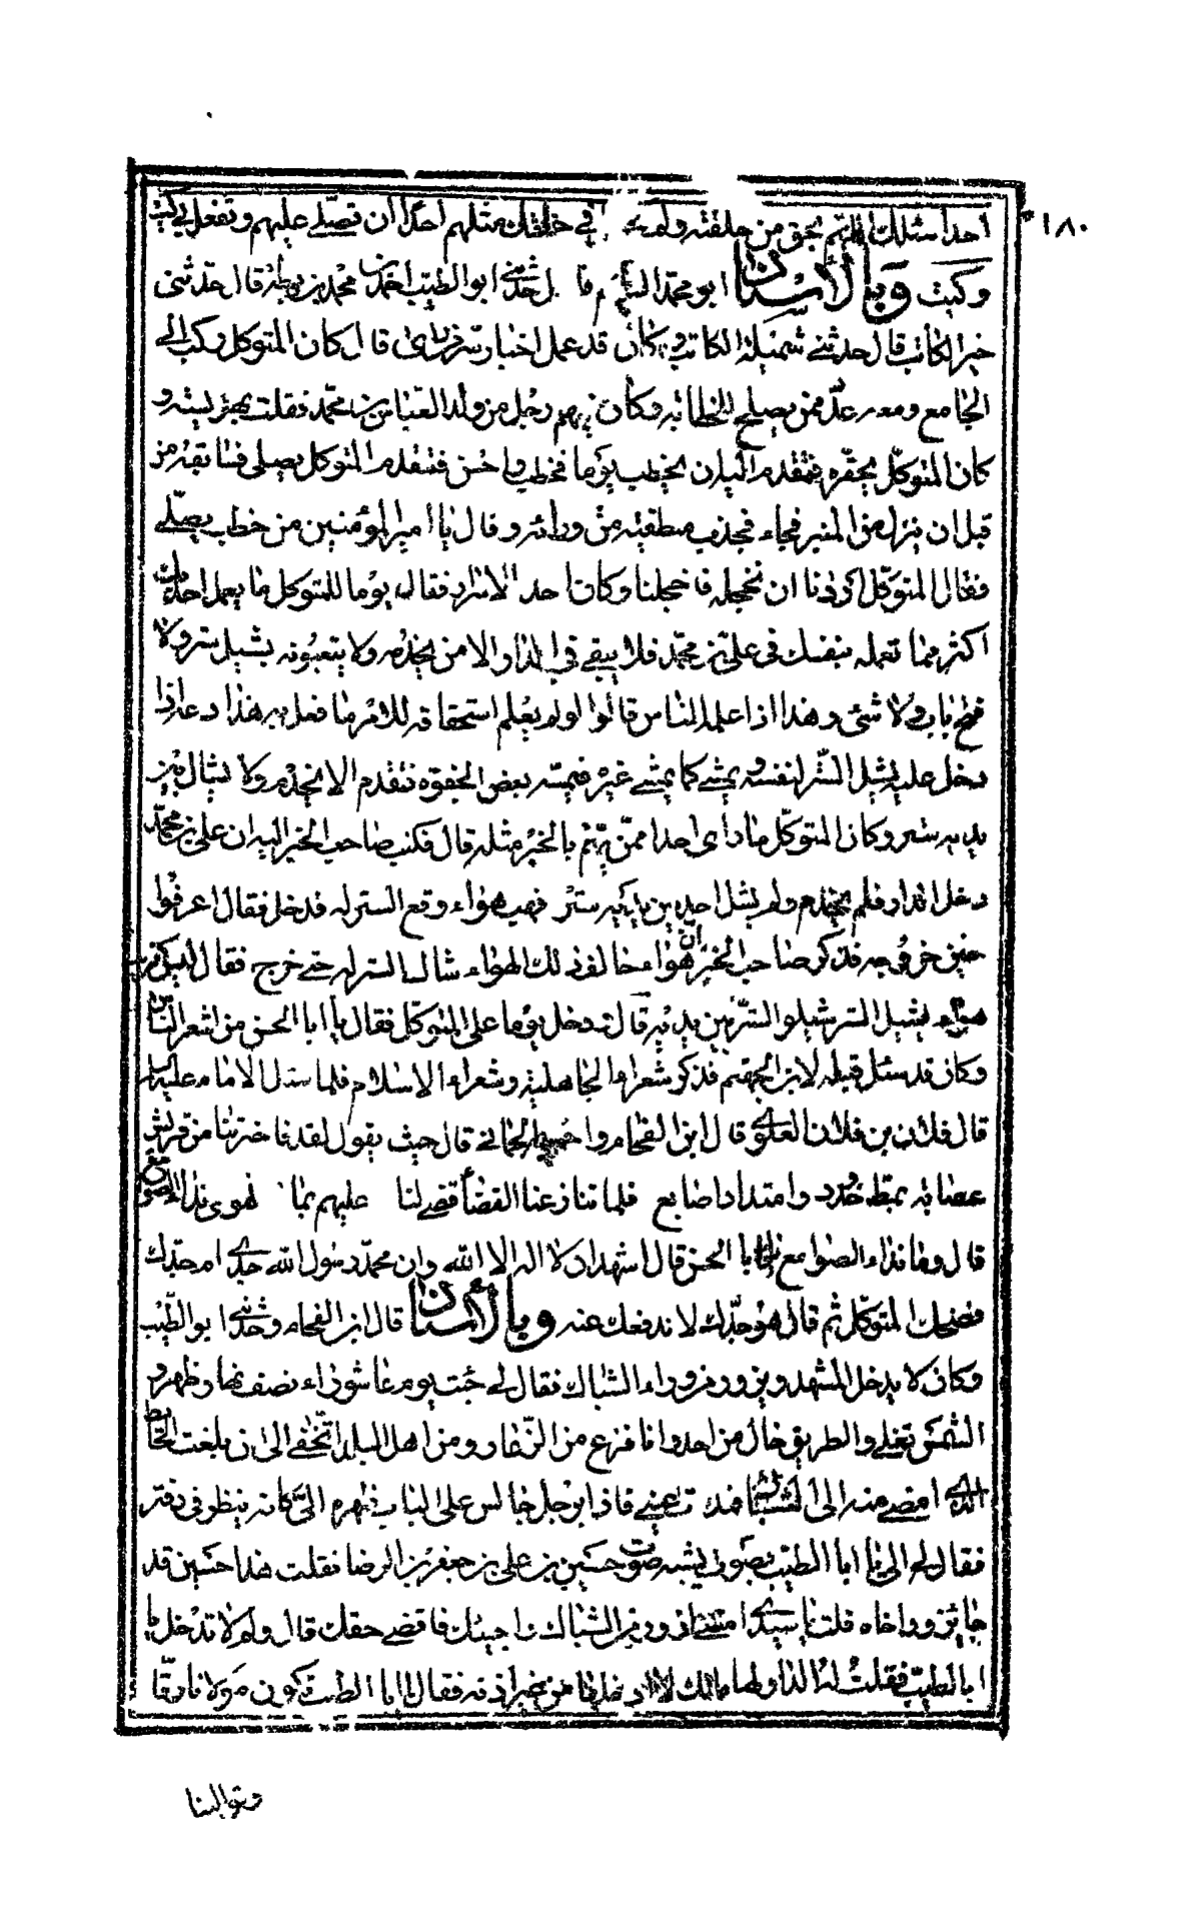 ١٨٠
احدا اسئلك اللهم بحق من خلقته ولم في خلقك مثلهم احدا ان تصلي عليهم وتفعل بي كيت
وكيت وبالاسناد ابو محمد الفحام قال حدثني ابو الطيب احمد بن محمد بن بطة قال حدثني
خير الكاتب قال حدثني شميلة الكاتب وكان قد عمل اخبار سر من رأى قال كان المتوكل ركب الى
الجامع ومعه عدد ممن يصلح للخطابة وكان فيهم رجل من ولد العباس بن محمد فقلت بهريسة و
كان المتوكل يحقره فتقدم اليه ان يخطب يوما فخطب واحسن فتقدم المتوكل يصلي فسابقه من
قبل ان ينزل من المنبر فجاء فجذب منطقته من ورائه وقال يا امير المؤمنين من خطب يصلي
فقال المتوكل اردنا ان نخجله فاخجلنا وكان احد الاشرار فقال يوما للمتوكل ما يعمل احد بك
اكثر مما تعمله بنفسك في علي بن محمد فلا يبقى في الدار الا من يخدمه ولا يتعبونه بشيل ستر ولا
فتح باب ولا شئ وهذا اذا علمه الناس قالوا لو لم يعلم استحقاقه للامر ما فعل به هذا دعه اذا
دخل عليه يشيل الستر لنفسه ويمشي كما يمشي غيره فيمسه بعض الجفوة فتقدم الا يخدم ولا يشال بين
يديه ستر وكان المتوكل ما راى احدا ممن يهتم بالخبر مثله قال فكتب صاحب الخبر اليه ان علي بن محمد
دخل الدار فلم يخدم ولم يشل احد بين يديه ستر فهب هواء رفع الستر له فدخل فقال اعرفوا
حين خروجه فذكر صاحب الخبر ان هواء خالف ذلك الهواء شال الستر له حتى خرج فقال ليس نريد
هواء يشيل الستر شيلوا الستر بين يديه قال ودخل يوما على المتوكل فقال يا ابا الحسن من اشعر الناس
وكان قد سئل قبله لابن الجهم فذكر شعراء الجاهلية وشعراء الاسلام فلما سئل الامام عليه السلام
قال فلان بن فلان العلوي قال ابن الفحام واحسبه الحماني قال حيث يقول لقد فاخرتنا من قريش
عصابة بمط خدود وامتداد اصابع فلما تنازعنا القضاء قضى لنا عليهم بما فهوى نداء الصوامع
قال وما نداء الصوامع يا ابا الحسن قال اشهد ان لا اله الا الله وان محمد رسول الله جدي ام جدك
فضحك المتوكل ثم قال هو جدك لا ندفعك عنه وبالاسناد قال ابن الفحام وحدثني ابو الطيب
وكان لا يدخل المشهد ويزور من وراء الشباك فقال لي جئت يوم عاشوراء نصف نهار ظهر و
الشمس تغلي والطريق خال من احد وانا فزع من الزعار ومن اهل البلد اتخفى الى ان بلغت الحائط
الذي امضي منه الى الشباك فمددت عيني فاذا برجل جالس على الباب ظهره الي كانه ينظر في دفتر
فقال لي الى يا ابا الطيب بصوت يشبه صوت حسين بن علي بن جعفر بن الرضا فقلت هذا حسين قد
جاء يزور اخاه قلت يا سيدي امضي ازور من الشباك واجيئك فاقضي حقك قال ولم لا تدخل يا
ابا الطيب فقلت له الدار لها مالك لا ادخلها من غير اذنه فقال يا ابا الطيب تكون مولانا رقا
وتوالينا